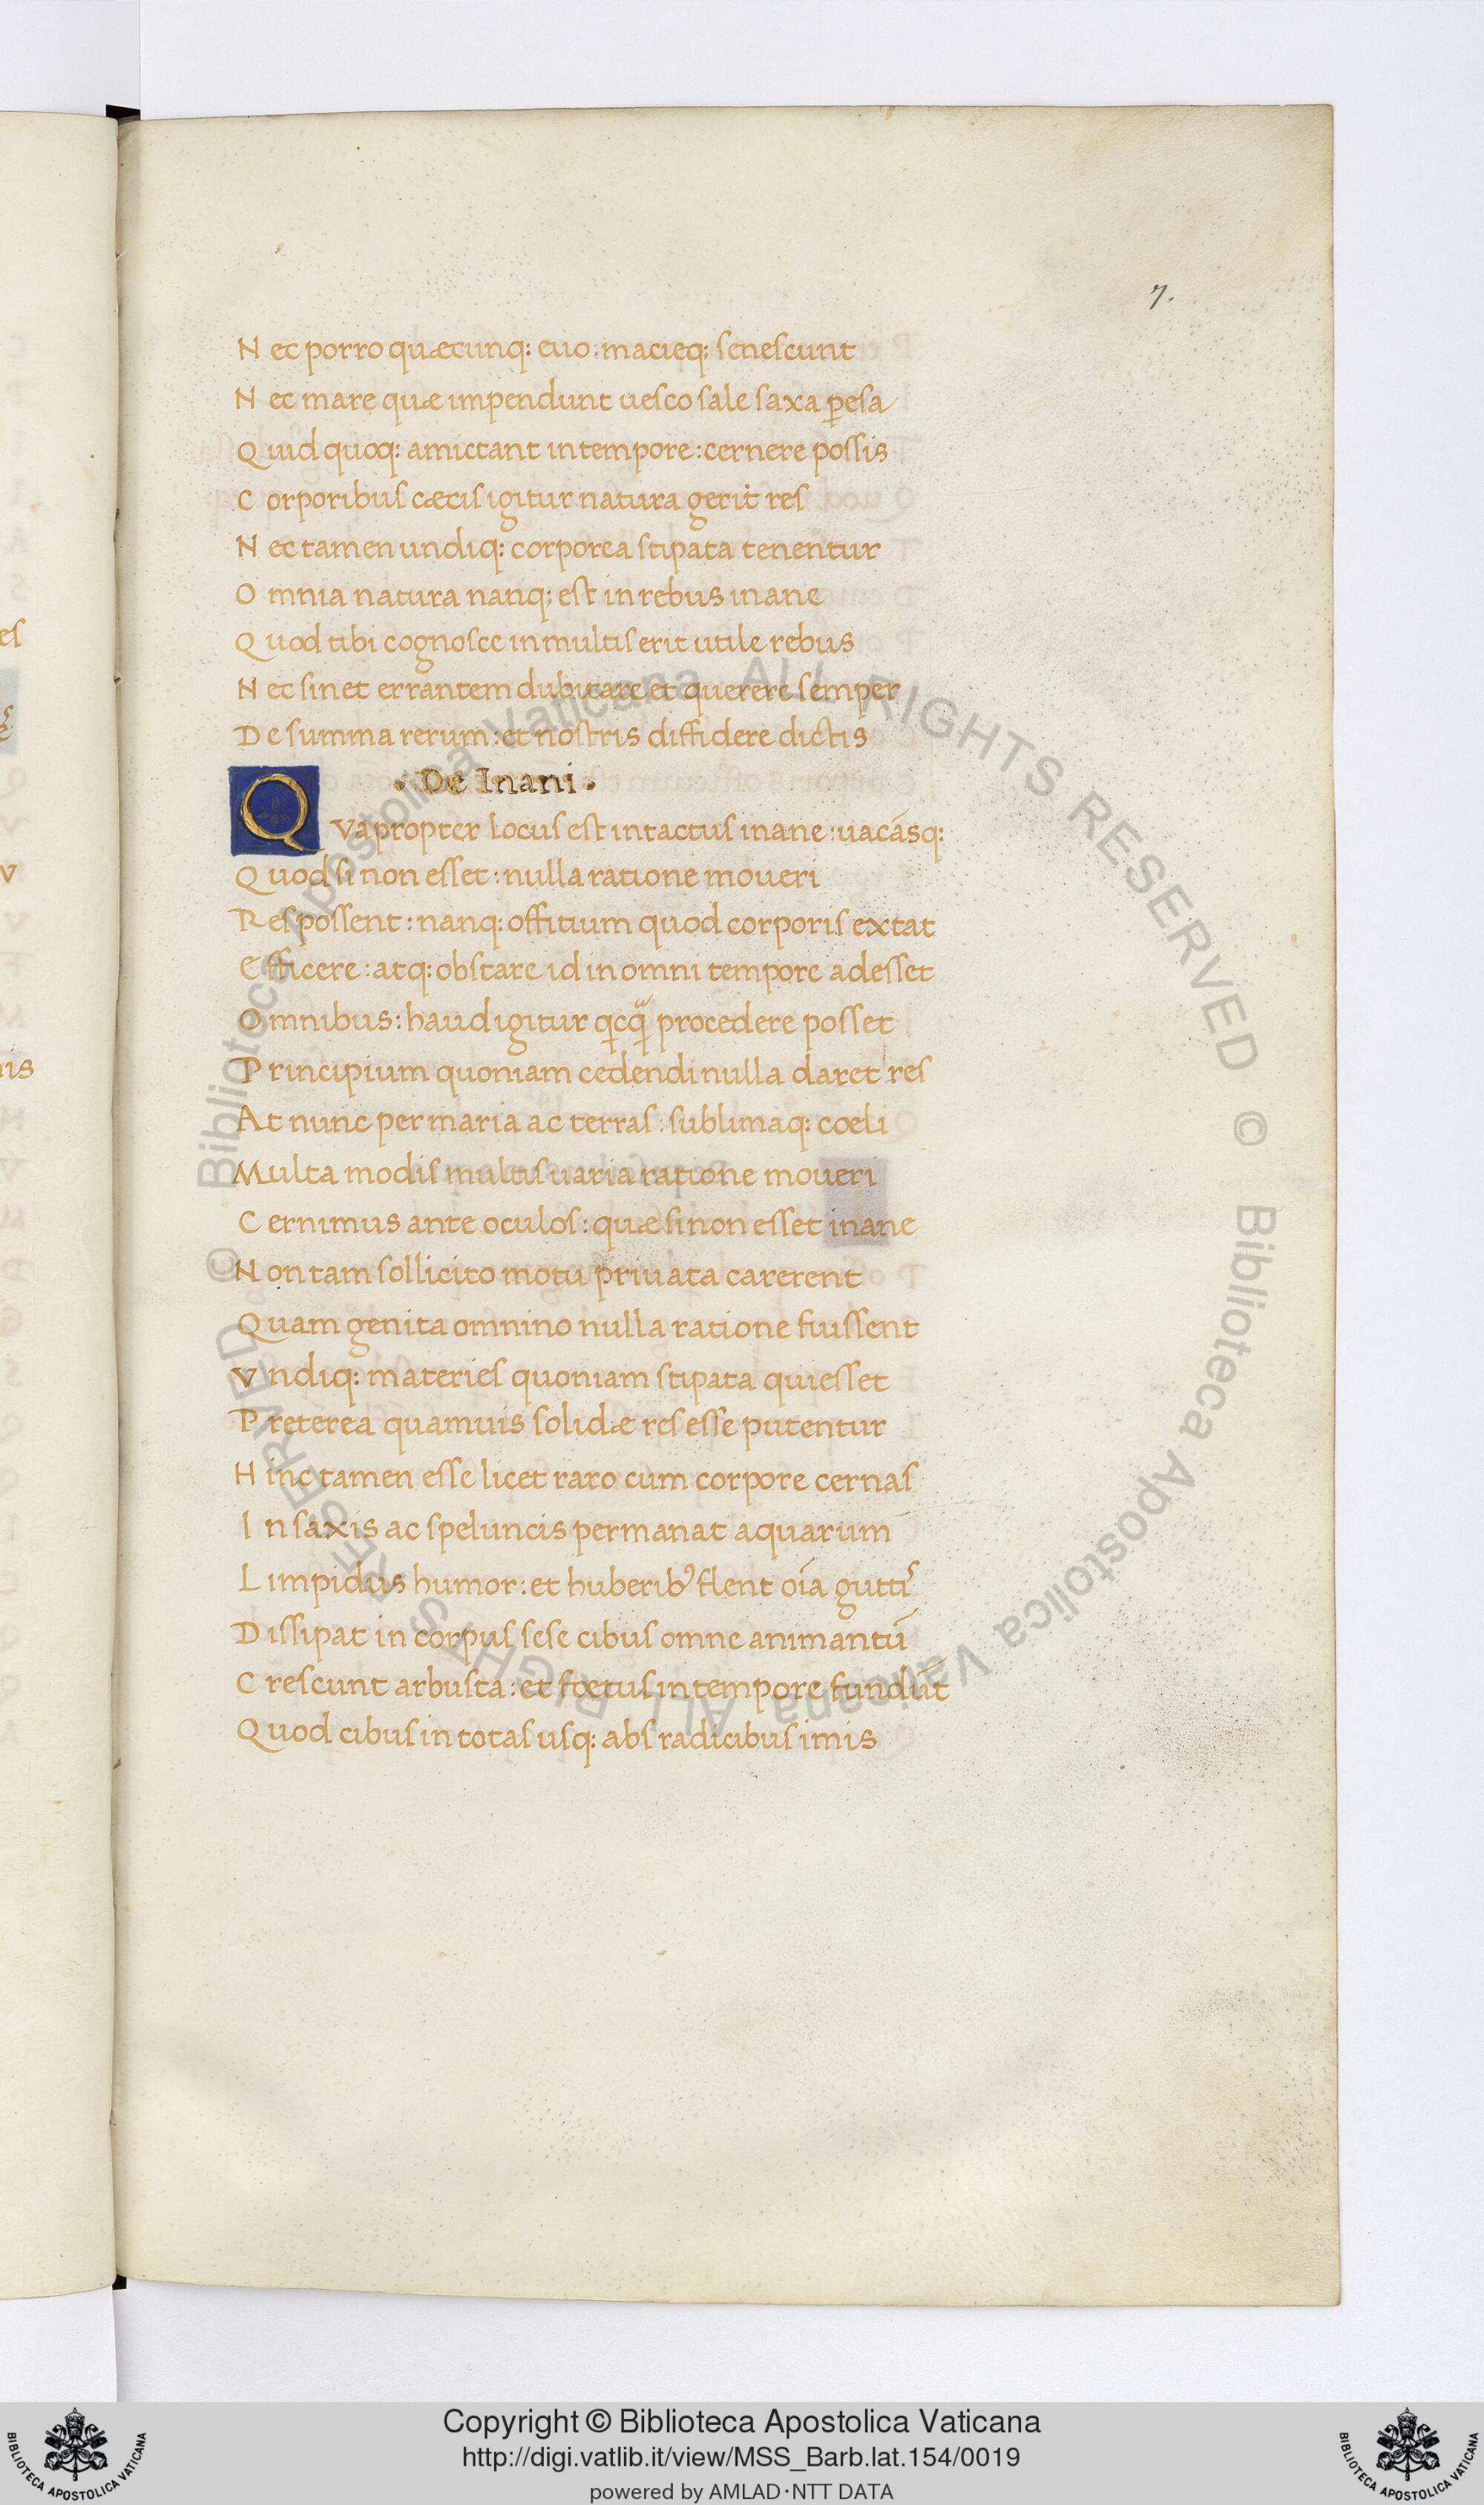 7.
Nec porro quæcunq: euo: macieq; senescunt
Nec mare quæ impendunt uesco sale saxa p̱esa
Quid quoq: amictant in tempore: cernere possis
Corporibus cæcis igitur natura gerit res
Nec tamen undiq: corporea stipata tenentur
Omnia natura nanq; est in rebus inane
Quod tibi cognosce in multis erit utile rebus
Nec sinet errantem dubitare et querere semper
De summa rerum: et nostris diffidere dictis
· De Inani ·
QVapropter locus est intactus inane: uacãsq:
Quod si non esset: nulla ratione moueri
Res possent: nanq: offitium quod corporis extat
Efficere: atq: obstare id in omni tempore adesset
Omnibus: haud igitur procedere posset
Principium quoniam cedendi nulla daret res
At nunc per maria ac terras: sublimaq: cœli
Multa modis multis uaria ratione moueri
Cernimus ante oculos: quæ si non esset inane
Non tam sollicito motu priuata carerent
Quam genita omnino nulla ratione fuissent
Vndiq: materies quoniam stipata quiesset
Preterea quamuis solidæ res esse putentur
Hinc tamen esse licet raro cum corpore cernas
In saxis ac speluncis permanat aquarum
Limpidus humor: et huberibꝰ flent oĩa guttis
Dissipat in corpus sese cibus omne animantũ
Crescunt arbusta: et fœtus in tempore fundũt
Quod cibus in totas usq: abs radicibus imis
© Biblioteca Apostolica Vaticana ALL RIGHTS RESERVED
© Biblioteca Apostolica Vaticana ALL RIGHTS RESERVED
Copyright © Biblioteca Apostolica Vaticana
http://digi.vatlib.it/view/MSS_Barb.lat.154/0019
powered by AMLAD·NTT DATA
BIBLIOTECA APOSTOLICA VATICANA
BIBLIOTECA APOSTOLICA VATICANA